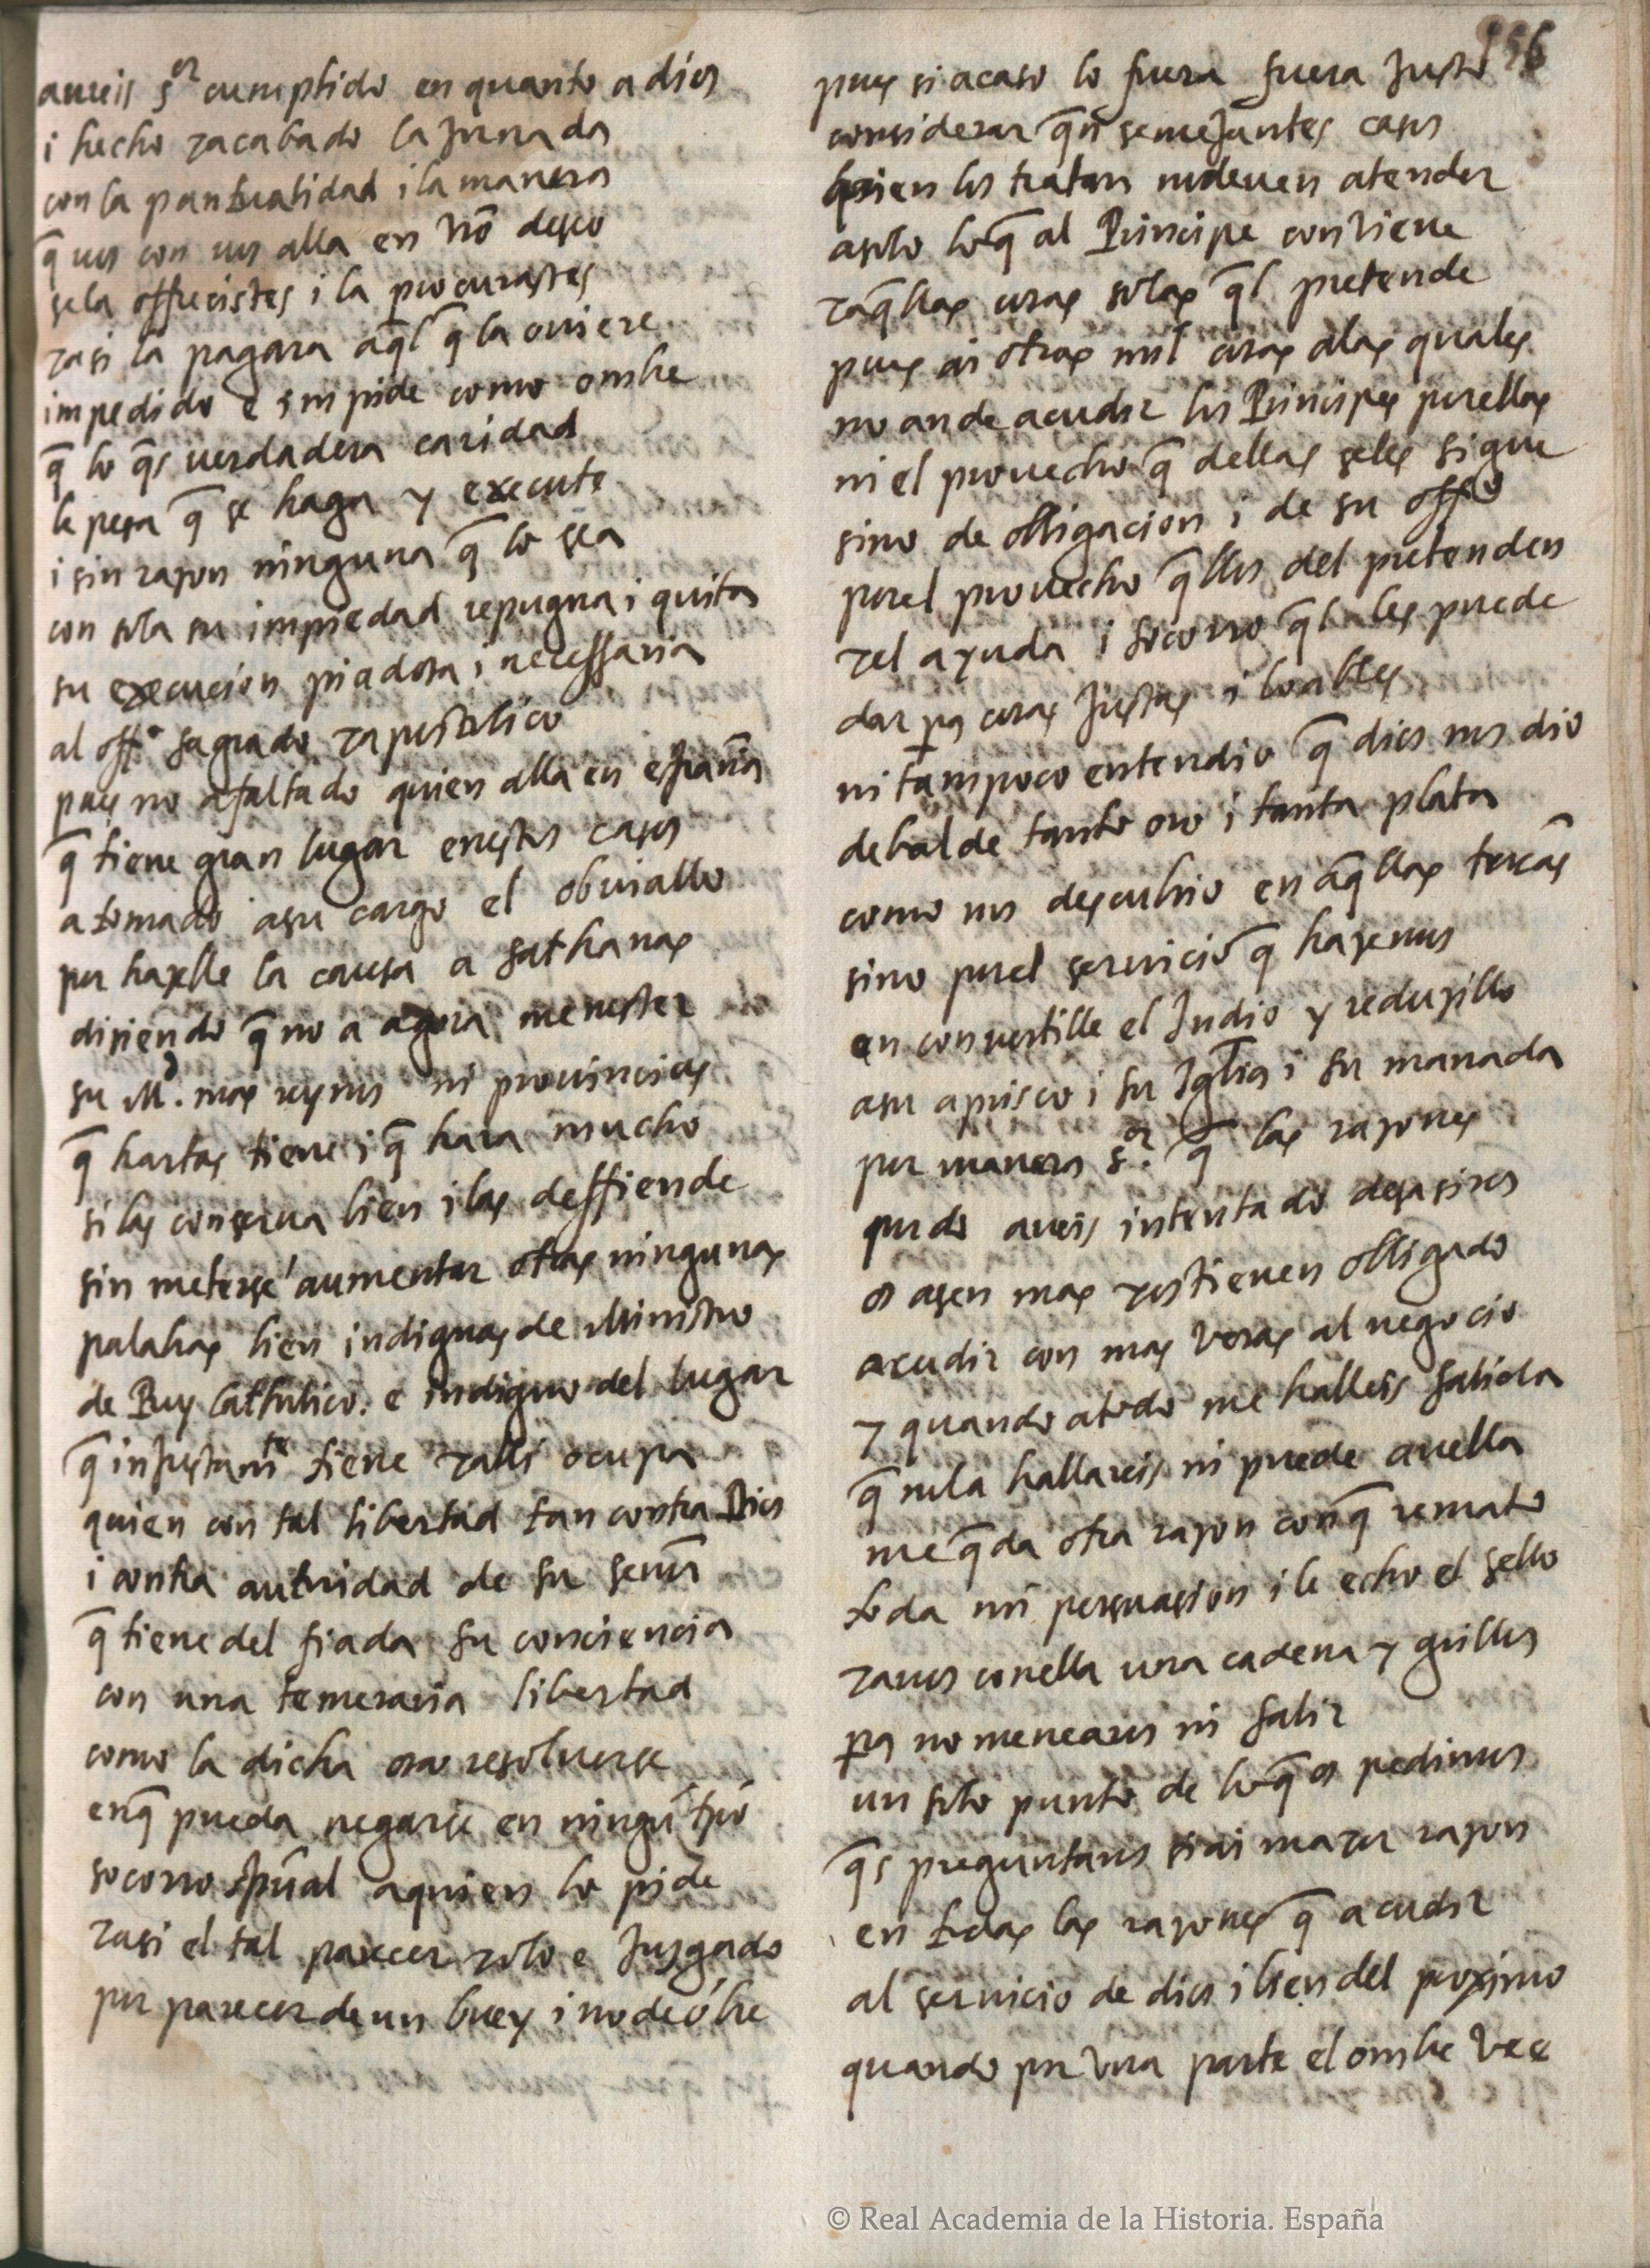 aureis s.or cumplido en quanto a dios
i hecho y acabado la Jornada
con la puntualidad i la manera
q̃ vos con vos alla en nr̃o deseo
se la offrecistes i la procurastes
y asi la pagara aq̃l q̃ la ouiere
impedido e impide como ombre
q̃ lo q̃s verdadera caridad
le pesa q̃ se haga y execute
i sin razon ninguna q̃ lo sea
con sola su impiedad repugna i quita
su execucion piadosa i necessaria
al offº sagrado y apostolico
pues no a faltado quien alla en españa
q̃ tiene gran lugar en estos casos
a tomado a su cargo el obuiallo
por hazelle la causa a sathanas
diziendo q̃ no a agora menester
su M.d mas reynos ni prouincias
q̃ hartas tiene i q̃ hara mucho
si las conserua bien i las deffiende
sin meterse aumentar otras ningunas
palabras bien indignas de Ministro
de Rey Catholico. e indigno del lugar
q̃ injustam.te tiene y alli ocupa
quien con tal libertad tan contra Dios
i contra autoridad de su señor
q̃ tiene del fiada su conciencia
con una temeraria libertad
como la dicha osa resoluerse
en q̃ pueda negarse en ningũ tpõ
socorro spũal a quien lo pide
y asi el tal parecer yo lo e Juzgado
por parecer de un buey i no de õbre
pues si acaso lo fuera fuera Justo
considerar q̃n semejantes casos
quien los tratan no deuen atender
a solo lo q̃ al Principe conviene
y aq̃llas cosas solas q̃l pretende
pues ai otras mil cosas a las quales
no an de acudir los Principes por ellas
ni el prouecho q̃ dellas seles sigue
sino de obligacion i de su offº
por el prouecho q̃llos del pretenden
y el ayuda i socorro q̃l les puede
dar pª cosas Justas i loables
ni tampoco entendio q̃ dios nos dio
debalde tanto oro i tanta plata
como nos descubrio en aq̃llas tierras
sino por el seruicio q̃ hazemos
en convertille el Indio y reduzillo
a su aprisco i su Iglĩa i su manada
por manera s.or q̃ las razones
por do aueis intentado desasiros
os asen mas y os tienen obligado
acudir con mas veras al negocio
y quando a todo me halleis salida
q̃ no la hallareis ni puede auella
me q̃da otra razon con q̃ remato
toda mi persuasion i le echo el sello
y a vos con ella una cadena y grillos
pª no menearos ni salir
un solo punto de lo q̃ os pedimos
q̃s preguntaros si ai mayor razon
en todas las razones q̃ acudir
al seruicio de dios i bien del proximo
quando por una parte el ombre vee
© Real Academia de la Historia. España